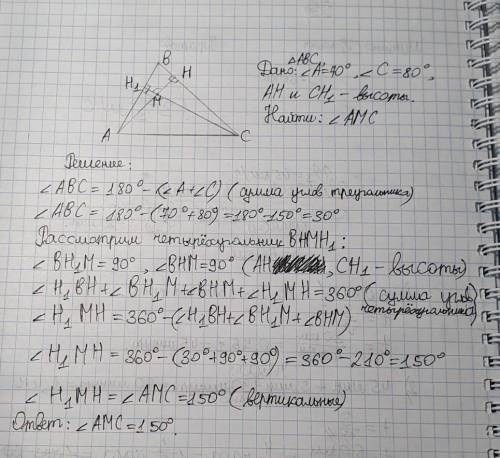 △ABC,
Дано: ∠A=70°, ∠C=80°,
AH и CH₁ - высоты.
Найти: ∠AMC
B
H
H₁
M
A
C
Решение:
∠ABC = 180° - (∠A + ∠C) (сумма углов треугольника)
∠ABC = 180° - (70° + 80) = 180° - 150° = 30°
Рассмотрим четырёхугольник BHMH₁:
∠BH₁M = 90°, ∠BHM = 90° (AH, CH₁ - высоты)
∠H₁BH + ∠BH₁M + ∠BHM + ∠H₁MH = 360° (сумма углов
четырёхугольника)
∠H₁MH = 360° - (∠H₁BH + ∠BH₁M + ∠BHM)
∠H₁MH = 360° - (30° + 90° + 90°) = 360° - 210° = 150°
∠H₁MH = ∠AMC = 150° (вертикальные)
Ответ: ∠AMC = 150°.